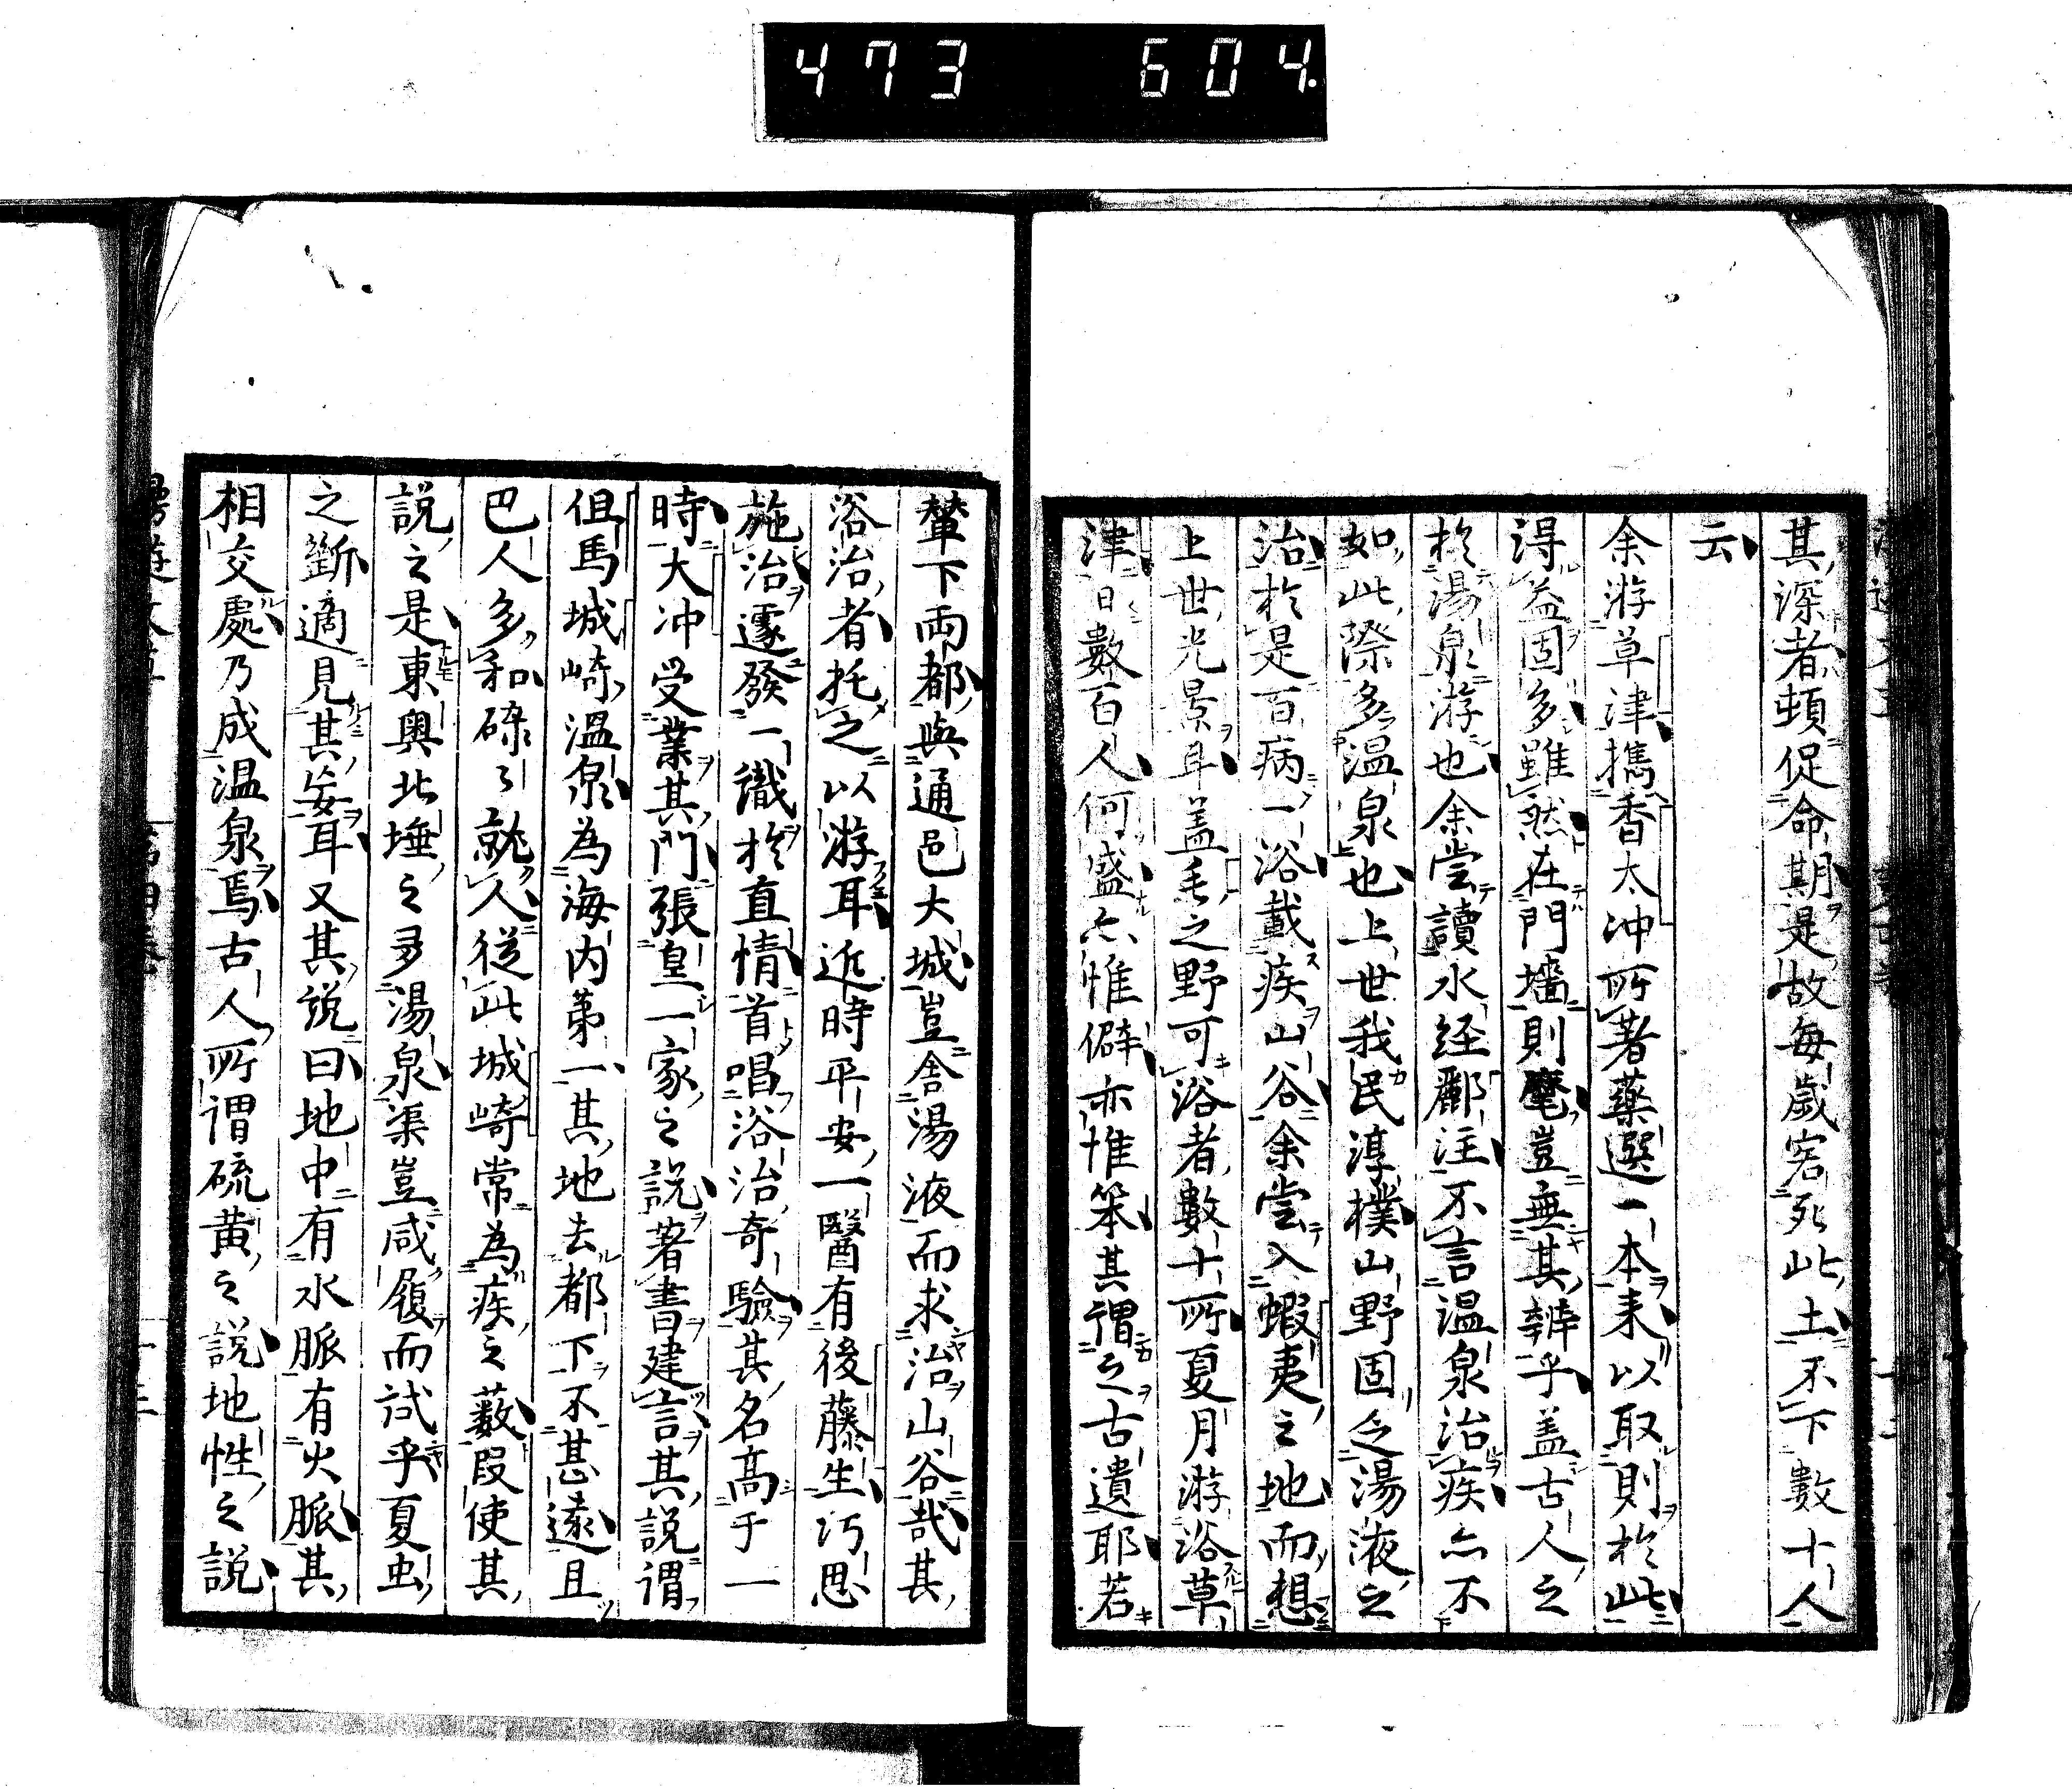 473 604.
其深者頓促命期是故每歲宕死此土不下數十人
云
余游草津携香太冲所著藥選一本來以取則於此
得益固多雖然在門墻則麾豈無其辨乎盖古人之
於湯泉游也余嘗讀水経酈注不言温泉治疾亦不
如此際多温泉也上世我民淳樸山野固乏湯液之
治於是百病一浴載疾山谷余嘗入蝦夷之地而想
上世光景耳盖毛之野可浴者數十所夏月游浴草
津日數百人何盛亦惟僻亦惟笨其謂之古遺耶若
輦下両都與通邑大城豈舎湯液而求治山谷哉其
浴治者托之以游耳近時平安一醫有後藤生巧思
施治遽發一識於直情首唱浴治奇驗其名高于一
時大冲受業其門張皇一家之說著書建言其說謂
但馬城崎温泉為海内第一其地去都下不甚遠且
巴人多和碌々就人從此城崎常為疾之藪叚使其
說之是東奥北埵之多湯泉渠豈咸履而試乎夏虫
之斷適見其妄耳又其說曰地中有水脈有火脈其
相交處乃成温泉焉古人所謂硫黄之說地性之說